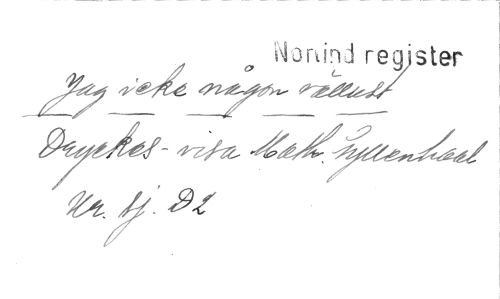 Norlind register
Jag icke någon vällust
Dryckes-visa Math. Gyllenhaal
Hr. sj. D2